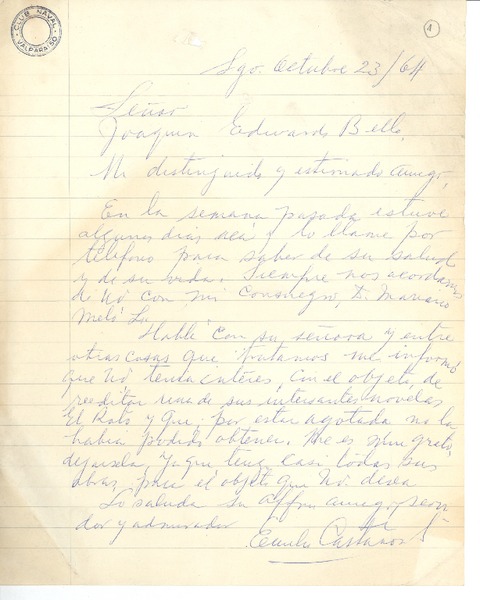 CLUB NAVAL
VALPARAISO
1
Sgo. Octubre 23/64
Señor
Joaquín Edwards Bello,
Mi distinguido y estimado amigo,
En la semana pasada estuve
algunos días acá y lo llamé por
teléfono para saber de su salud
y de su vida. Siempre nos acordamos
de Ud con mi consuegro, D. Mariano
Melo
Hablé con su señora y entre
otras cosas que tratamos me informó
que Ud, tenía interés, con el objeto, de
reeditar una de sus interesantes novelas
El Roto y que, por estar agotada no la
había podido obtener. Me es muy grato,
dejársela, ya que tengo casi todas sus
obras, para el objeto que Ud. desea
Lo saluda su affmo amigo,
dor y admirador
Emilio